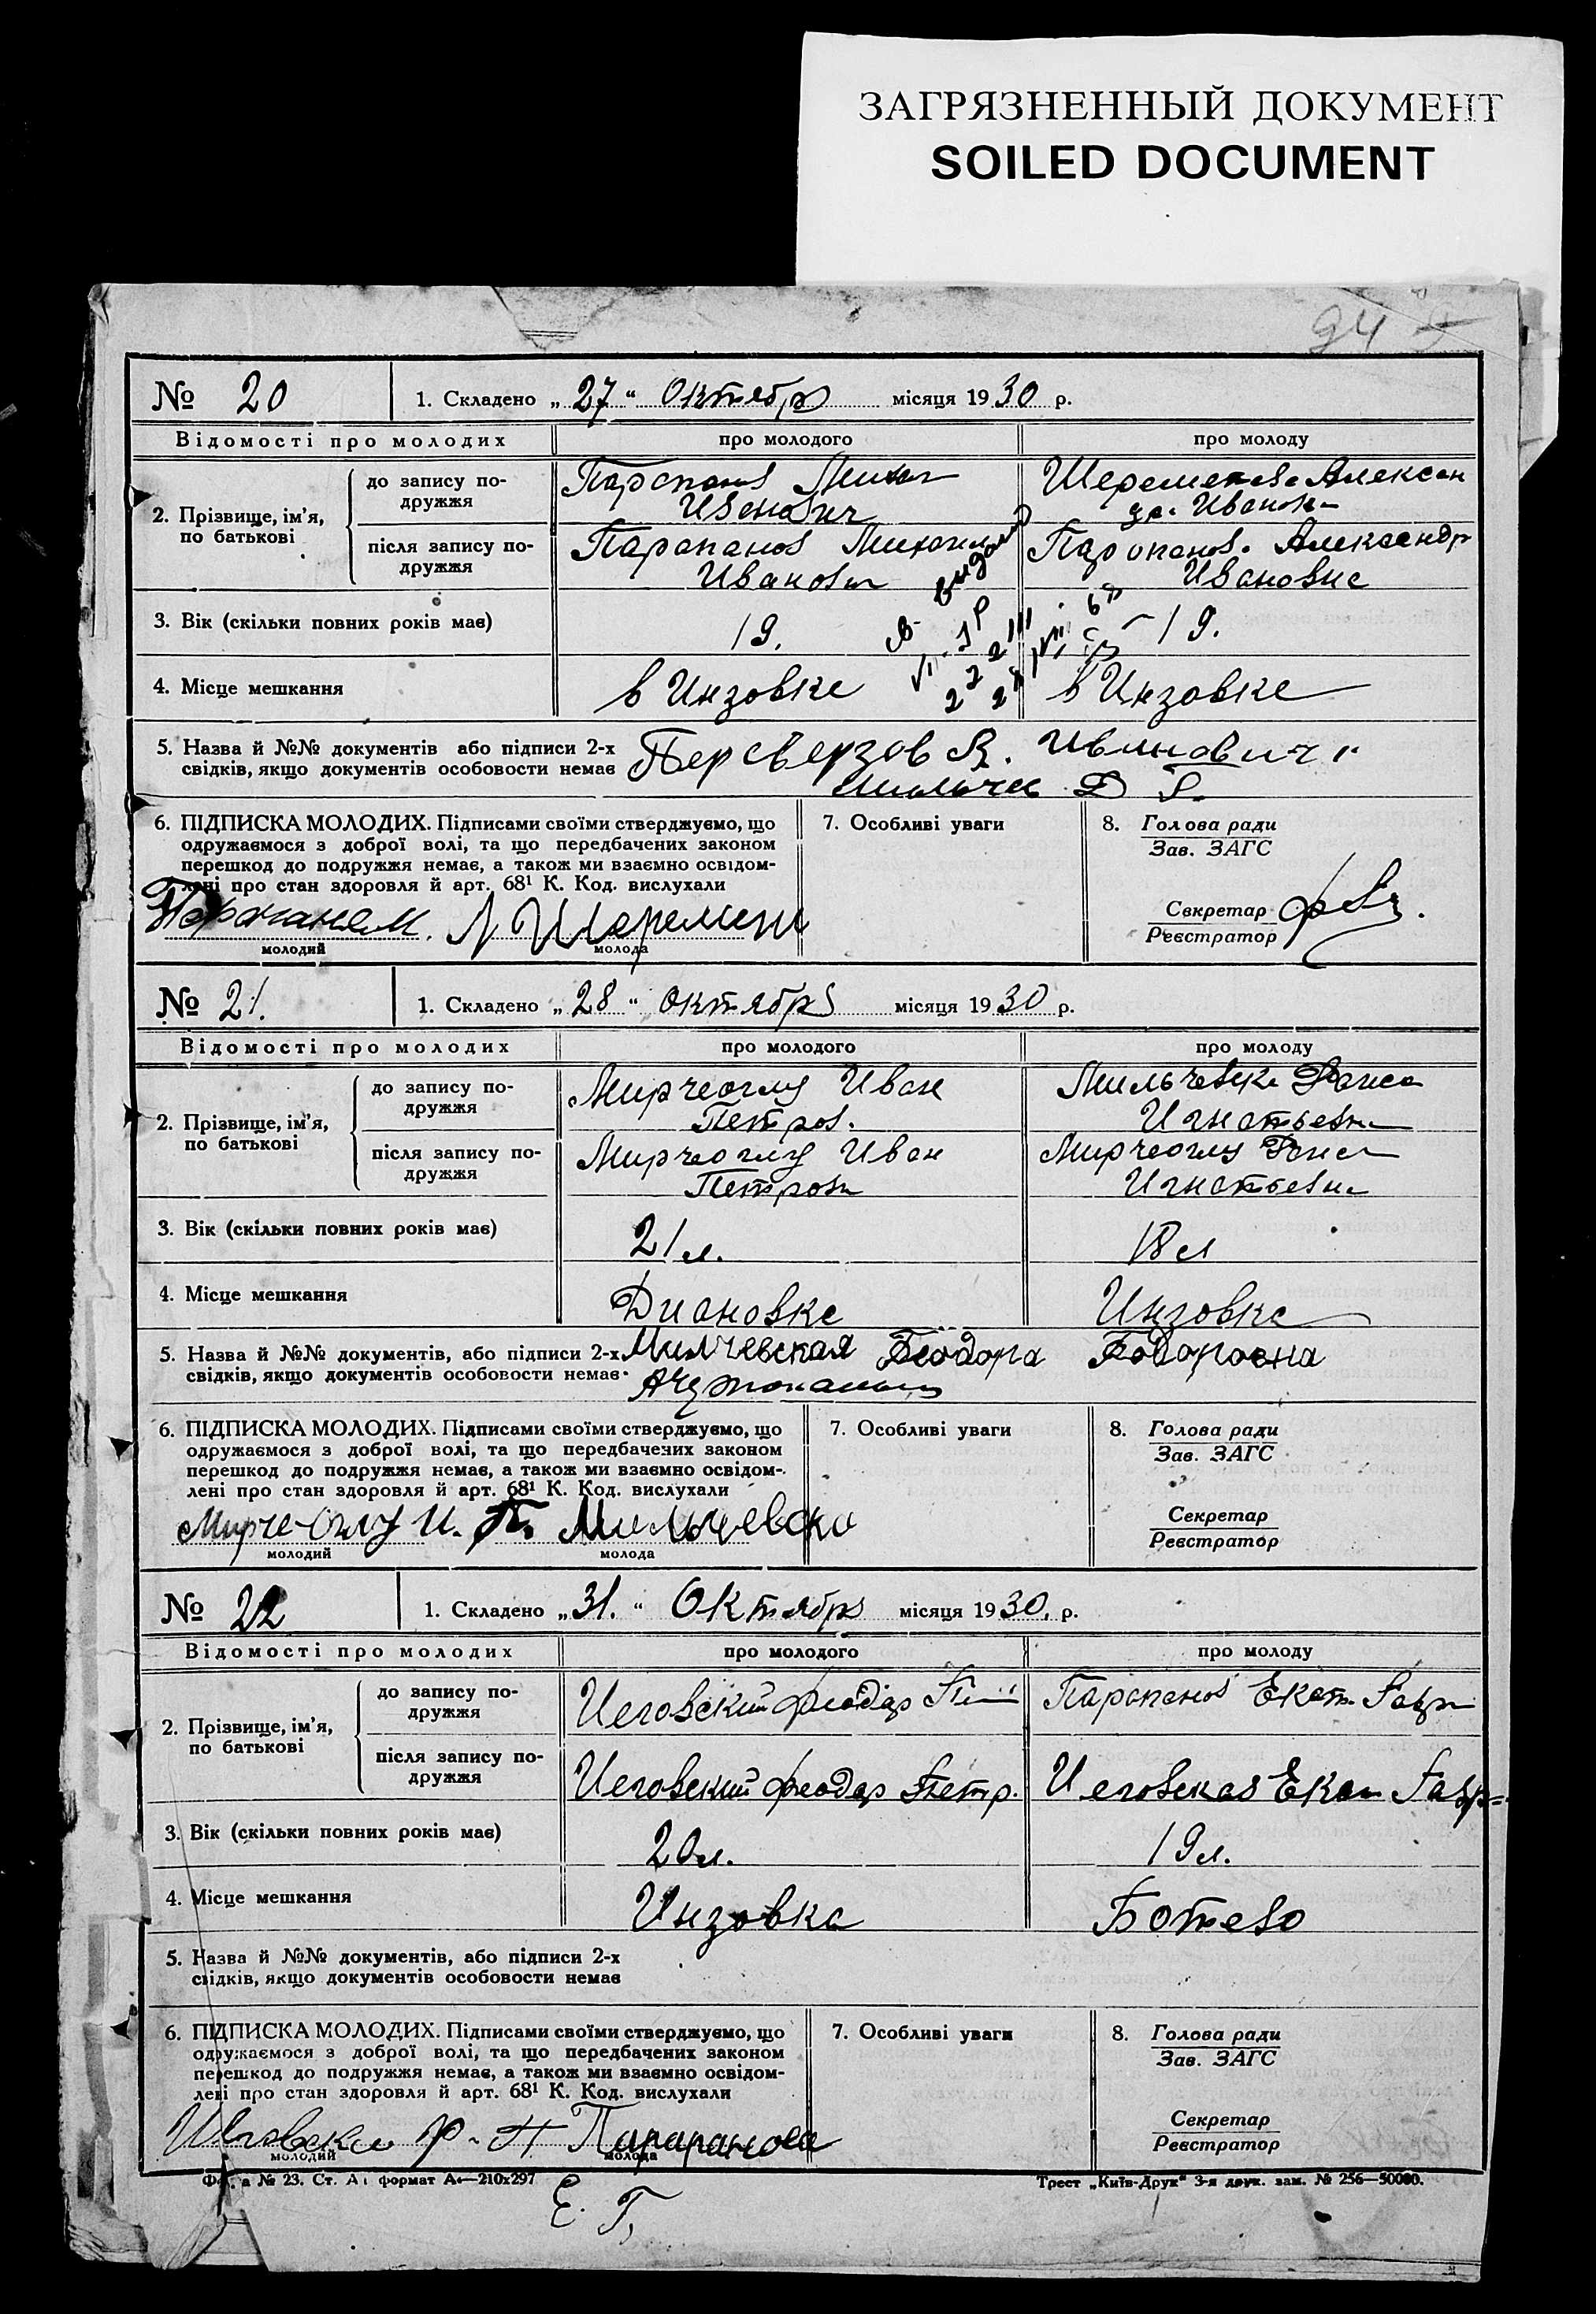 ЗАГРЯЗНЕННЫЙ ДОКУМЕНТ
SOILED DOCUMENT
94
№ 20 1. Складено „27“ Октября місяця 1930 р.
Відомості про молодих про молодого про молоду
2. Прізвище, ім'я, по батькові
до запису по-
дружжя
Парапанов Михаил
Иванович
Шереметова Александ
ра Иванов
після запису по-
дружжя
Парапанов Михаил
Иванович
Парапанов. Александр
Ивановна
3. Вік (скільки повних років має) 19. 19.
4. Місце мешкання в Инзовке в Инзовке
5. Назва й №№ документів або підписи 2-х
свідків, якщо документів особовости немає
Иванович
6. ПІДПИСКА МОЛОДИХ. Підписами своїми стверджуємо, що
одружаємося з доброї волі, та що передбачених законом
перешкод до подружжя немає, а також ми взаємно освідом-
лені про стан здоров'я й арт. 68¹ К. Код. вислухали
молодий молода
7. Особливі уваги
8. Голова ради
Зав. ЗАГС
Секретар
Реєстратор
№ 21. 1. Складено „28“ октября місяця 1930 р.
Відомості про молодих про молодого про молоду
2. Прізвище, ім'я,
по батькові
до запису по-
дружжя
Мирчеоглу Иван
Петров.
Мильчевск
Игнатьевн
після запису по-
дружжя
Мирчеоглу Иван
Петрови
Мирчеоглу
Игнатьевн
3. Вік (скільки повних років має) 21 л. 18 л
4. Місце мешкання Диановке Инзовке
5. Назва й №№ документів, або підписи 2-х
свідків, якщо документів особовости немає
Милчевская Феодора Федоровна
6. ПІДПИСКА МОЛОДИХ. Підписами своїми стверджуємо, що
одружаємося з доброї волі, та що передбачених законом
перешкод до подружжя немає, а також ми взаємно освідом-
лені про стан здоровля й арт. 68¹ К. Код. вислухали
Мирчеоглу И. П. Мильчевска
молодий молода
7. Особливі уваги
8. Голова ради
Зав. ЗАГС
Секретар
Реєстратор
№ 22 1. Складено „31.“ Октября місяця 1930. р.
Відомості про молодих про молодого про молоду
2. Прізвище, ім'я,
по батькові
до запису по-
дружжя
Чеговский Феодор
Парапанов Екат. Гавр
після запису по-
дружжя
Чеговский Феодор Петр.
Чеговская Екат Гавр
3. Вік (скільки повних років має) 20 л. 19 л.
4. Місце мешкання Инзовка Ботево
5. Назва й №№ документів, або підписи 2-х
свідків, якщо документів особовости немає
6. ПІДПИСКА МОЛОДИХ. Підписами своїми стверджуємо, що
одружаємося з доброї волі, та що передбачених законом
перешкод до подружжя немає, а також ми взаємно освідом-
лені про стан здоровля й арт. 68¹ К. Код. вислухали
молодий молода
7. Особливі уваги
8. Голова ради
Зав. ЗАГС
Секретар
Реєстратор
№ 23. Ст. А₁ формат А₄—210х297
Трест „Київ-Друк“ 3-я друк. зам. № 256—50000.
Е. Г.